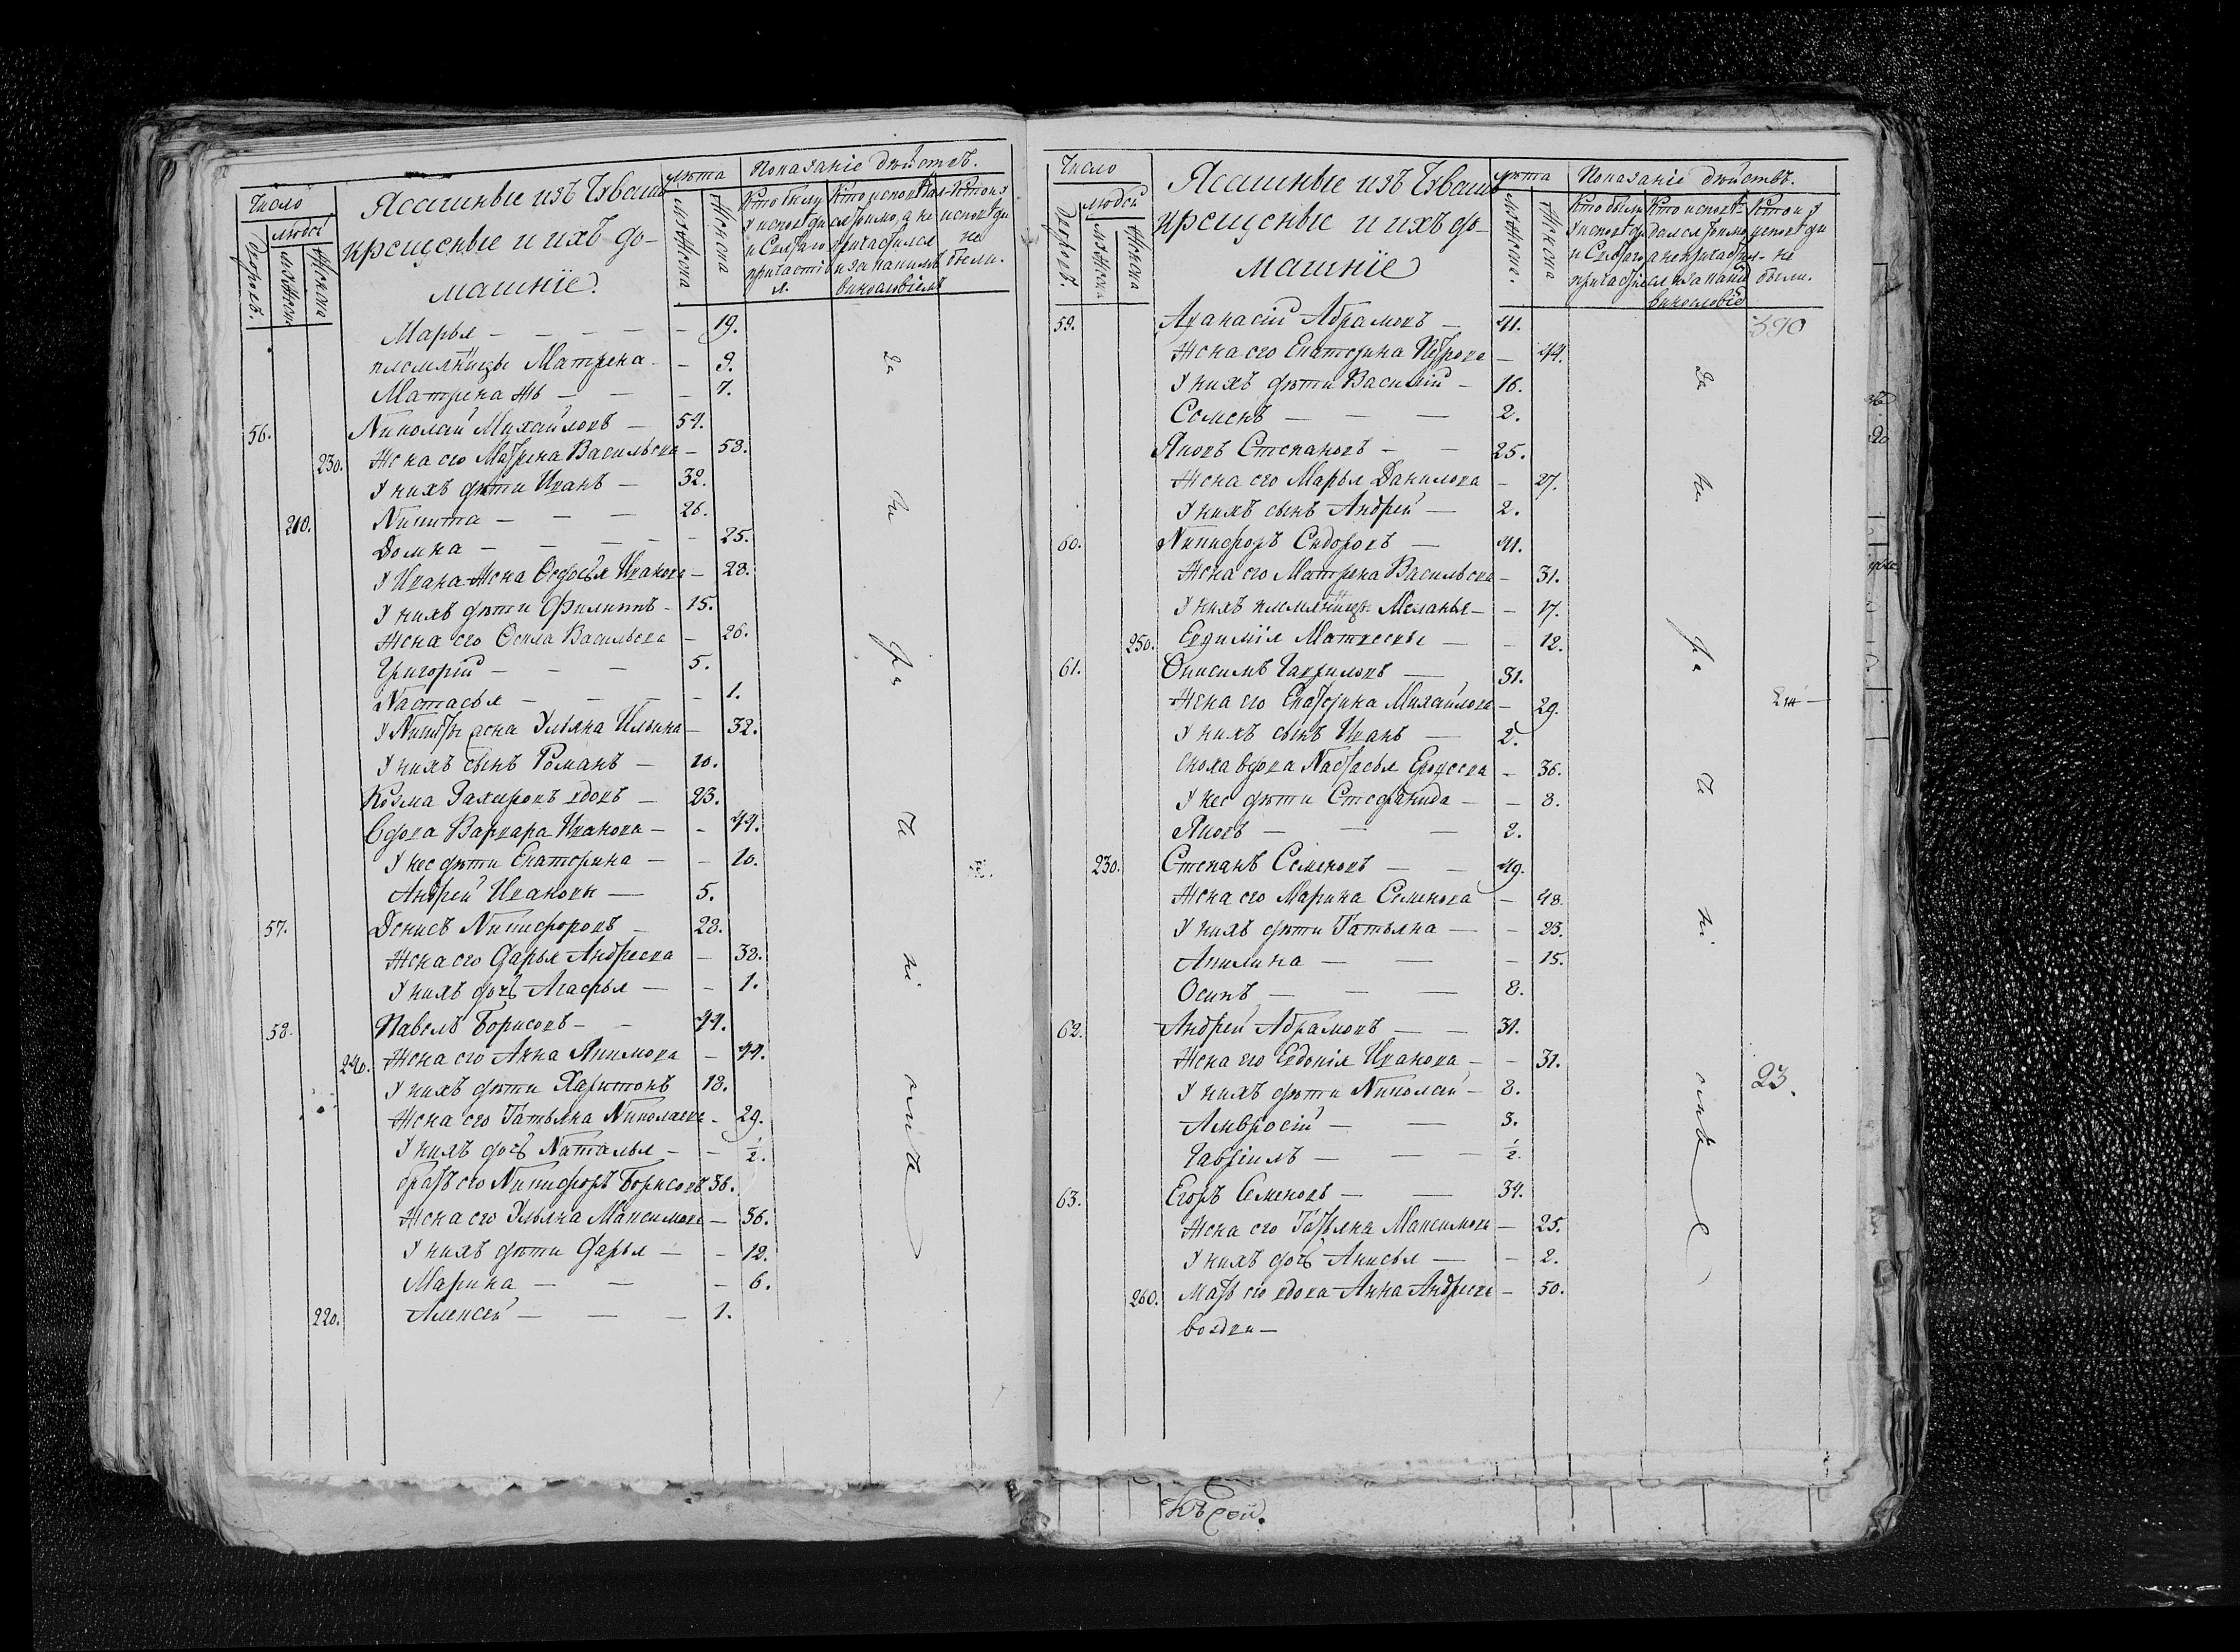 Число
людей
дворовъ.
мужеска
женска
Ясашные изъ Чуваш
крещеные и ихъ до-
машніе.
лѣта
мужеска
женска
Показаніе дѣйствъ.
Кто были
у исповѣди
и Святаго
причастія
Кто исповѣдал-
ся токмо, а не
причастился
и за какимъ
винословіемъ
Кто и у
исповѣди
не
были.
Марья — — — — — 19.
племянницы Матрена — — 9.
Матрена жъ — — — 7.
56. Николай Михайловъ — 54.
230. Жена его Матрена Васильева — 58.
У нихъ дѣти Иванъ — 32.
210. Никита — — — 26.
Домна — — — — — 25.
У Ивана жена Ѳедосья Иванова — 28.
У нихъ дѣти Филиппъ — 15.
Жена его Осипа Васильева — 26.
Григорій — — — 5.
Настасья — — — — 1.
У Никиты жена Ульяна Ильина — 32.
У нихъ сынъ Романъ — 10.
Козма Захаровъ вдовъ — 23.
Вдова Варвара Иванова — — 44.
У нее дѣти Екатерина — — 10.
Андрей Ивановы — 5.
57. Денисъ Никифоровъ — 28.
Жена его Дарья Андреева — 38.
У нихъ дочь Агафья — — 1.
58. Павелъ Борисовъ — — 44.
240. Жена его Анна Якимова — 44.
У нихъ дѣти Харитонъ 18.
Жена его Татьяна Николаева — 29.
У нихъ дочь Наталья — — ½.
братъ его Никифоръ Борисовъ 36.
Жена его Ульяна Максимова — 36.
У нихъ дѣти Дарья — — 12.
Марина — — — 6.
220. Алексей — — — 1.
за
ни
ма
ні
емъ
Число
людей
дворовъ.
мужеска
женска
Ясашные изъ Чуваш
крещеные и ихъ до-
машніе
лѣта
мужеска.
женска
Показаніе дѣйствъ.
Кто были
у исповѣди
и Святаго
Кто исповѣ-
дался токмо
а не причасти-
лся и за каким
винословіе
Кто и у
исповѣди
не
были.
59. Аѳанасій Абрамовъ — 41.
390
Жена его Екатерина Петрова — 44.
У нихъ дѣти Василій — 16.
Семенъ — — — 2.
Яковъ Степановъ — — 25.
Жена его Марья Данилова — 27.
У нихъ сынъ Андрей — 2.
60. Никифоръ Сидоровъ — 41.
Жена его Матрена Васильева — 31.
У нихъ племянницы Меланья — — 17.
250. Евдимія Матвеевы — — 12.
61. Онисимъ Гавриловъ — 31.
Жена его Екатерина Михайлова — 29.
У нихъ сынъ Иванъ — 2.
сноха вдова Настасья Ерофеева — 36.
У нее дѣти Стефанида — — 8.
Яковъ — — — 2.
230. Степанъ Семеновъ — — 49.
Жена его Марина Семенова — 48.
У нихъ дѣти Татьяна — — 23.
Акилина — — — 15.
Осипъ — — — 8.
62. Андрей Абрамовъ — — 31.
Жена его Евдокія Иванова — — 31.
У нихъ дѣти Николай — 8.
23.
Амвросій — — 3.
Гавріилъ — — — ½.
63. Егоръ Семеновъ — — 34.
Жена его Татьяна Максимова — 25.
У нихъ дочь Анисья — — 2.
260. Мать его вдова Анна Андреева — 50.
за
ни
ма
ні
емъ